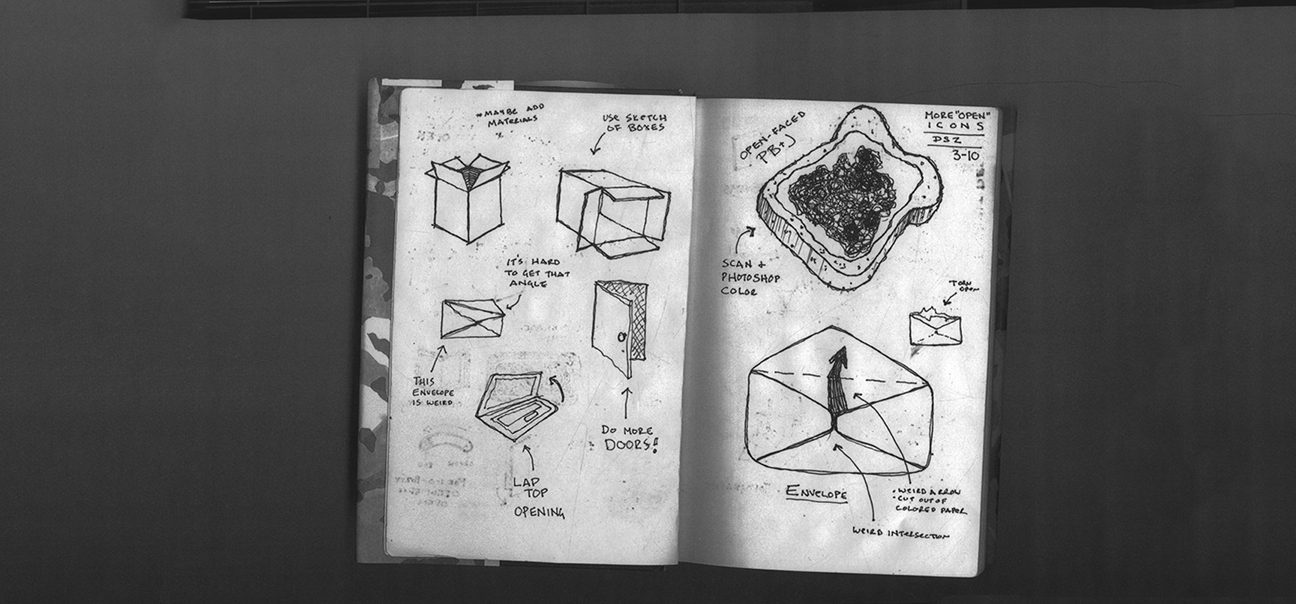 *MAYBE ADD
MATERIALS
USE SKETCH
OF BOXES
IT'S HARD
TO GET THAT
ANGLE
THIS
ENVELOPE
IS WEIRD
DO MORE
DOORS!
LAP
TOP
OPENING
MORE "OPEN"
ICONS
DSZ
3-10
OPEN-FACED
PB+J
SCAN +
PHOTOSHOP
COLOR
TORN
OPEN
ENVELOPE
• WEIRD ARROW
• CUT OUT OF
COLORED PAPER
WEIRD INTERSECTION